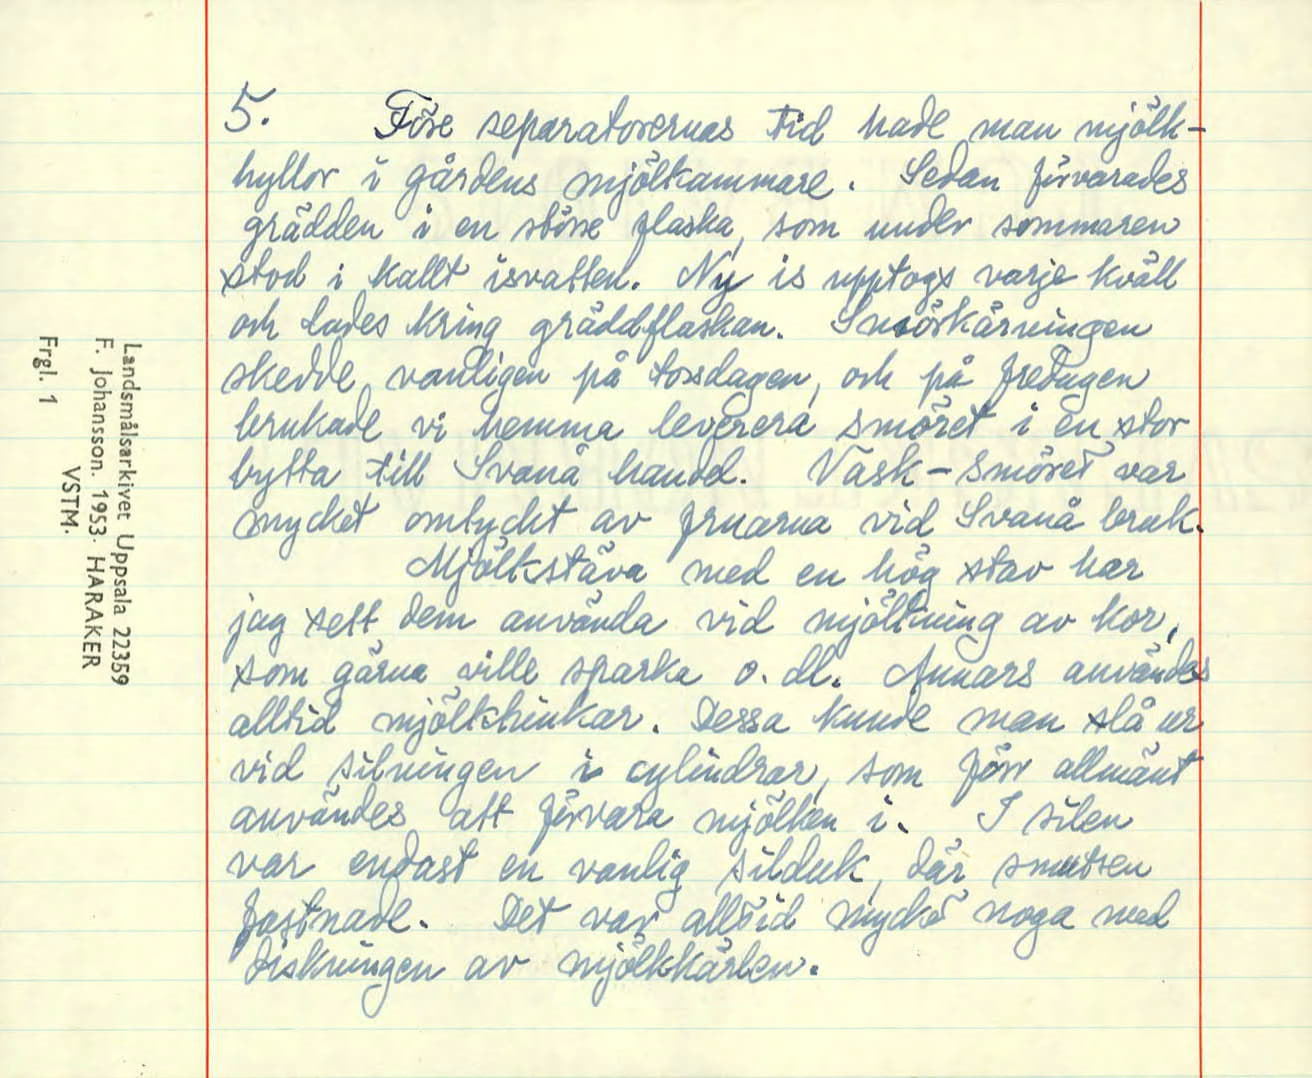 5. Före separatorernas tid hade man mjölk-
hyllor i gårdens mjölkammare. Sedan förvarades
grädden i en större flaska, som under sommaren
stod i kallt isvatten. Ny is upptogs varje kväll
och lades kring gräddflaskan. Smörkärningen
skedde vanligen på torsdagen, och på fredagen
brukade vi hemma leverera smöret i en stor
bytta till Svanå handel. Vask-smöret var
mycket omtyckt av fruarna vid Svanå bruk.
Mjölkstäva med en hög stav har
jag sett dem använda vid mjölkning av kor,
som gärna ville sparka o. dl. Annars användes
alltid mjölkhinkar. Dessa kunde man slå ur
vid silningen i cylindrar, som förr allmänt
användes att förvara mjölken i. I silen
var endast en vanlig silduk, där smutsen
fastnade. Det var alltid mycket noga med
diskningen av mjölkkärlen.
Landsmålsarkivet Uppsala 22359
F. Johansson. 1953. HARAKER
VSTM.
Frgl. 1